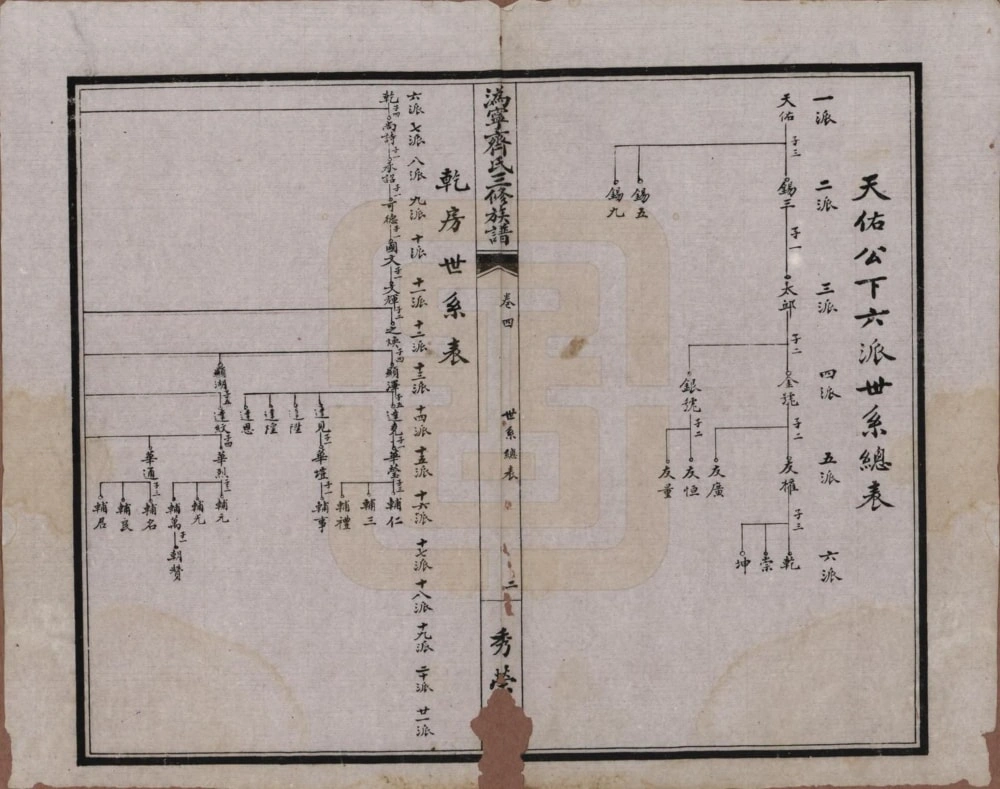 天佑公下六派世系總表
一派
二派
三派
四派
五派
六派
天佑
子三
錫三
子一
太郎
子二
金號
子二
友權
子三
乾
崇
坤
友廣
銀號
子二
友恒
友量
錫五
錫九
溈寧齊氏三修族譜
卷四
世系總表
二
秀榮
乾房世系表
六派
七派
八派
九派
十派
十一派
十二派
十三派
十四派
十五派
十六派
十七派
十八派
十九派
二十派
廿一派
乾
子四
尚詩
子一
永詔
子一
奇德
子一
國文
子一
文輝
子二
之煥
子四
顯澤
子五
達堯
子一
華瑩
子三
輔仁
輔三
輔禮
達見
子一
華瑄
子一
輔事
達陞
達隍
達恩
顯湖
子五
達紋
子四
華烈
子三
輔元
輔光
輔萬
子一
朝贊
華通
子三
輔名
輔良
輔居